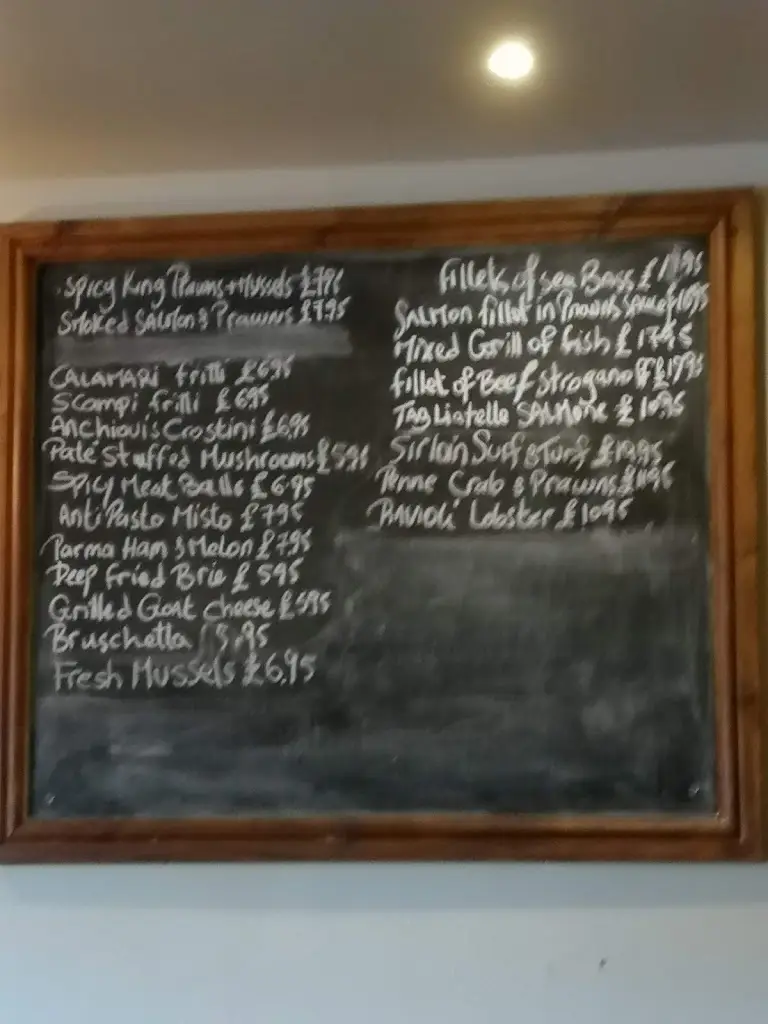 Spicy King Prawns + Mussels £7.95
Smoked Salmon & Prawns £7.95
CALAMARI fritti £6.95
Scampi fritti £6.95
Anchiovis Crostini £6.95
Paté Stuffed Mushrooms £5.95
Spicy Meat Balls £6.95
Anti Pasto Misto £7.95
Parma Ham & Melon £7.95
Deep Fried Brie £5.95
Grilled Goat cheese £5.95
Bruschetta £5.95
Fresh Mussels £6.95
fillets of sea Bass
SALMON fillet in Prawns Sauce
Mixed Grill of fish £17.95
fillet of Beef Stroganoff
TAGLiatelle SALMONE £10.95
Sirloin Surf & Turf £19.95
Penne Crab & Prawns £11.95
RAVIOLi Lobster £10.95